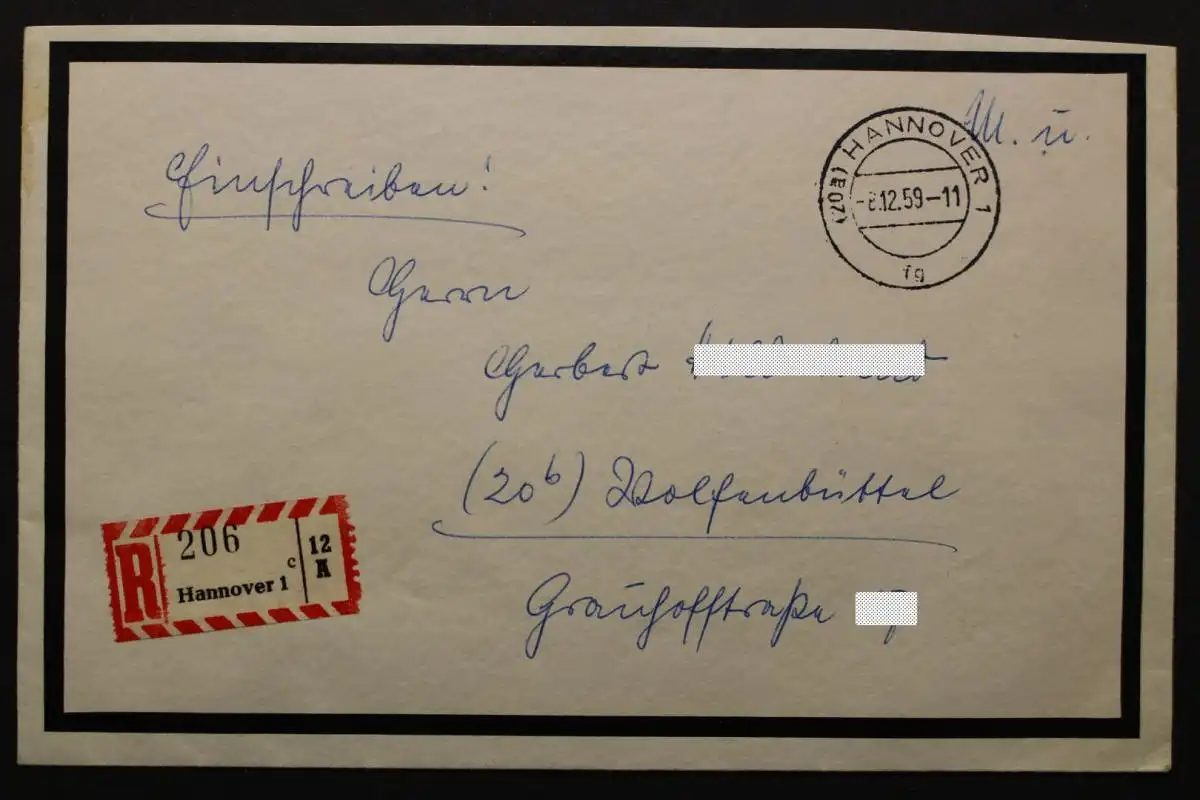 M. ü.
Einschreiben!
(20a) HANNOVER 1
12.59-11
fg
Herrn
Herbert
(20b) Wolfenbüttel
Grauhofstraße
R 206
Hannover 1 c
12
A